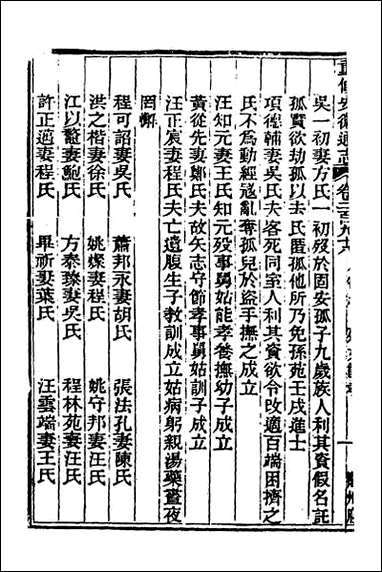 重修安徽通志 卷二百九十六
吳一初妻方氏一初歿於固安孤子九歲族人利其貲假名託
孤實欲劫孤以去氏匿孤他所乃免孫苑壬戌進士
項德輔妻吳氏夫客死同室人利其貲欲令改適百端困擠之
氏不爲動經亂奪孤兒於盜手撫之成立
汪知元妻王氏知元歿事舅姑能孝養撫幼子成立
黃從先妻鄭氏夫故矢志守節孝事舅姑訓子成立
汪正宸妻程氏夫亡遺腹生子教訓成立姑病躬親湯藥晝夜
罔懈
程可詔妻吳氏 蕭邦永妻胡氏 張法孔妻陳氏
洪之楷妻徐氏 姚妻程氏 姚守邦妻汪氏
江以妻鮑氏 方泰臻妻吳氏 程林苑妻汪氏
許正適妻程氏 畢祈妻葉氏 汪雲端妻王氏